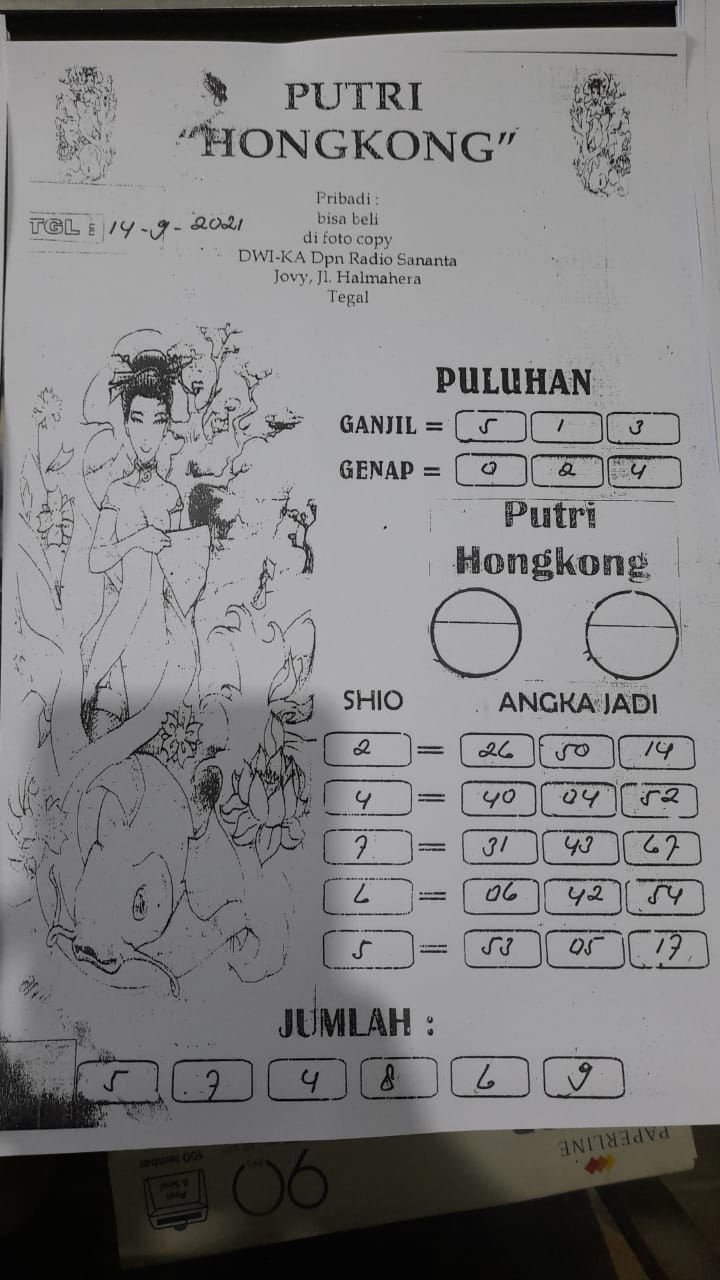 PUTRI
"HONGKONG"
Pribadi :
bisa beli
di foto copy
DWI-KA Dpn Radio Sananta
Jovy, Jl. Halmahera
Tegal
TGL : 14-9-2021
PULUHAN
GANJIL = 5 1 3
GENAP = 0 2 4
Putri
Hongkong
SHIO ANGKA JADI
2 = 26 50 14
4 = 40 04 52
7 = 31 43 67
6 = 06 42 54
5 = 53 05 17
JUMLAH :
5 7 4 8 6 9
PAPERLINE
100 lembar
90